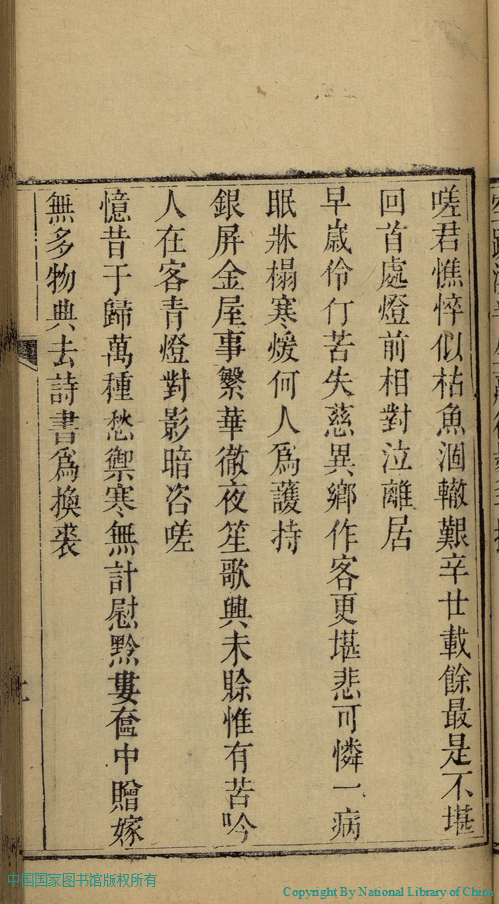 嗟君憔悴似枯魚涸轍艱辛廿載餘最是不堪
回首處燈前相對泣離居
早歲伶仃苦失慈異鄉作客更堪悲可憐一病
眠牀榻寒煖何人為護持
銀屏金屋事繁華徹夜笙歌興未賒惟有苦吟
人在客青燈對影暗咨嗟
憶昔于歸萬種愁禦寒無計慰黔婁奩中贈嫁
無多物典去詩書為換裘
中国国家图书馆版权所有
Copyright By National Library of China